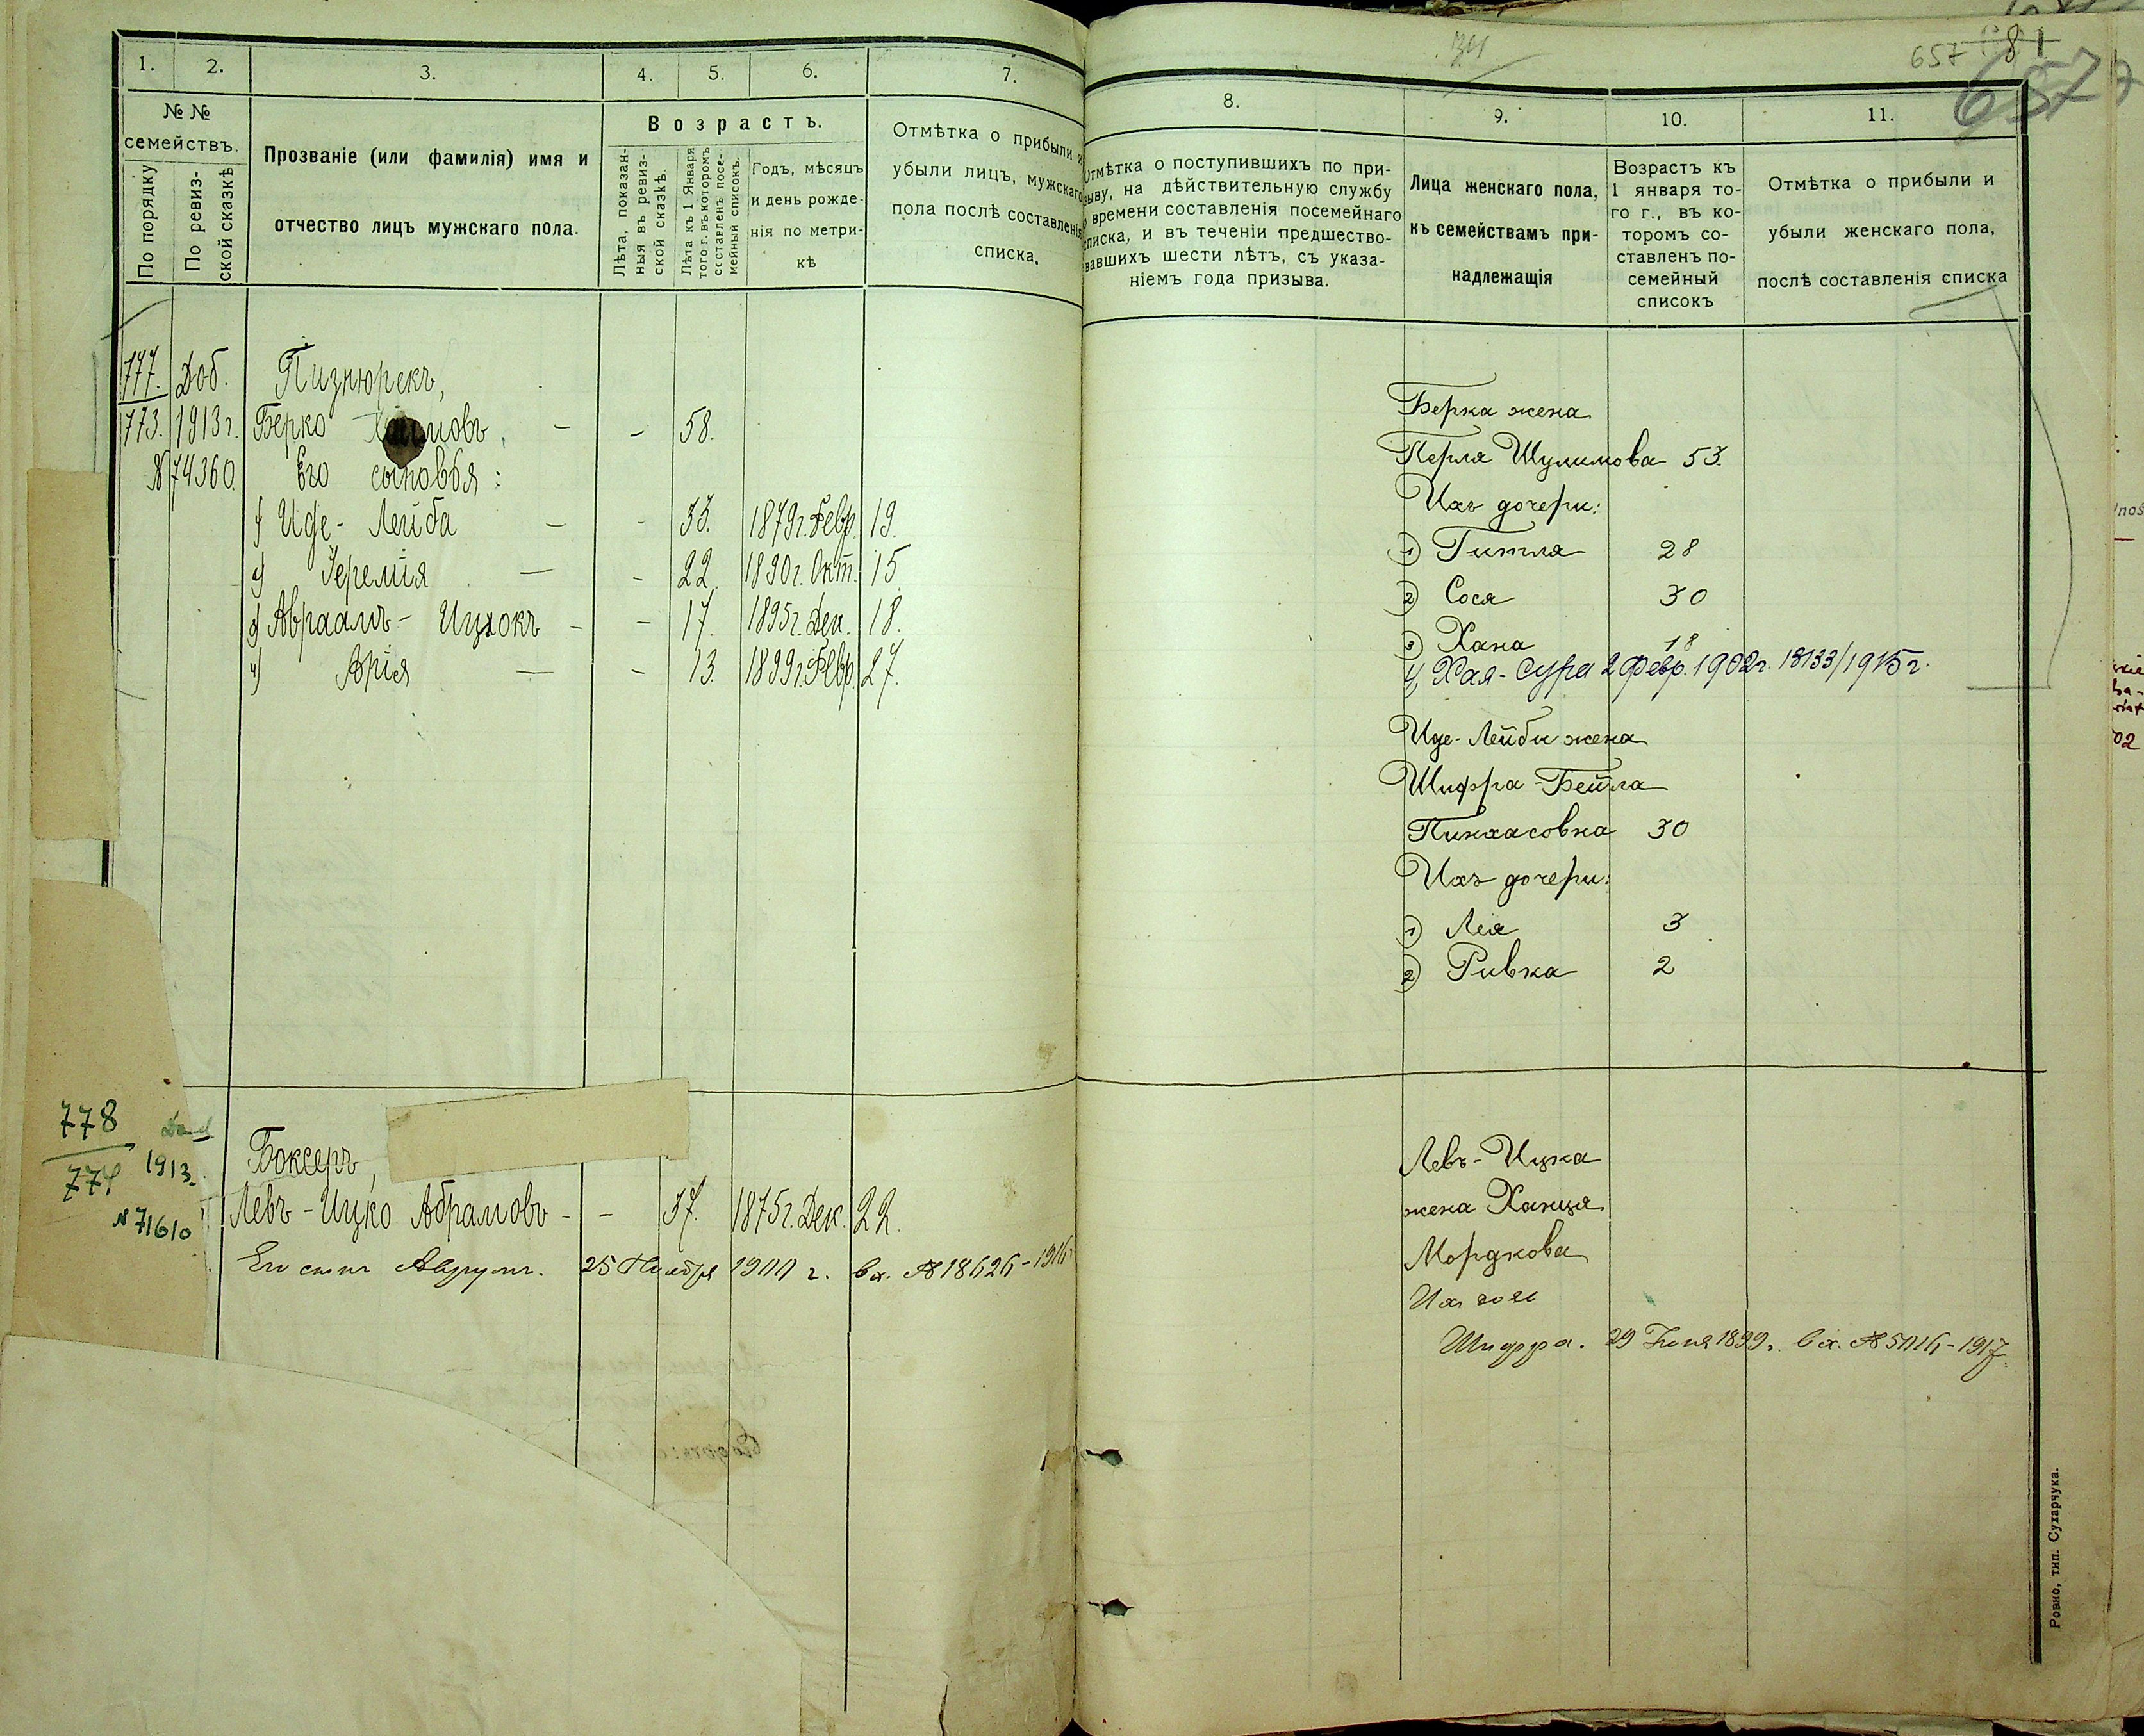 1.
2.
3.
4.
5.
6.
7.
№ №
семействъ.
По порядку
По ревиз-
ской сказкѣ
Прозваніе (или фамилія) имя и
отчество лицъ мужскаго пола.
Возрастъ.
Лѣта, показан-
ныя въ ревиз-
ской сказкѣ.
Лѣта къ 1 Января
того г. въ которомъ
составленъ посе-
мейный списокъ.
Годъ, мѣсяцъ
и день рожде-
нія по метри-
кѣ
Отмѣтка о прибыли и
убыли лицъ, мужскаго
пола послѣ составленія
списка.
777. Доб. Пизнюрекъ,
773. 1913г. Берко - - 58.
№ 74360. Его сыновья:
1) Иде-Лейба - - 33. 1879г. Февр. 19.
2) Іеремія - - 22. 1890г. Окт. 15
3) Авраамъ-Ицхокъ - - 17. 1895г. Дек. 18.
4) Арія - - 13. 1899г. Февр. 27.
778
774
1913.
№ 71610
Боксеръ,
Левъ-Ицко Абрамовъ - - 37. 1875г. Дек. 22.
Его сынъ Аврумъ. 25 Ноября 1900 г. вх. № 18626-1916
34
657 81
657
8.
9.
10.
11.
Отмѣтка о поступившихъ по при-
зыву, на дѣйствительную службу
времени составленія посемейнаго
списка, и въ теченіи предшество-
вавшихъ шести лѣтъ, съ указа-
ніемъ года призыва.
Лица женскаго пола,
къ семействамъ при-
надлежащія
Возрастъ къ
1 января то-
го г., въ ко-
торомъ со-
ставленъ по-
семейный
списокъ
Отмѣтка о прибыли и
убыли женскаго пола,
послѣ составленія списка
Берка жена
Перля Шулимова 53.
Ихъ дочери:
1) Гитля 28
2) Сося 30
3) Хана 18
4) Хая-Сура 2 Февр. 1902г. 18133/1915г.
Иде-Лейби жена
Шифра-Бейла
Пинхасовна 30
Ихъ дочери:
1) Лея 3
2) Ривка 2
Левъ-Ицка
жена Ханця
Мордкова
Ихъ
Шифра. 29 Іюня 1899г. вх. № -1917
Ровно, тип. Сухарчука.